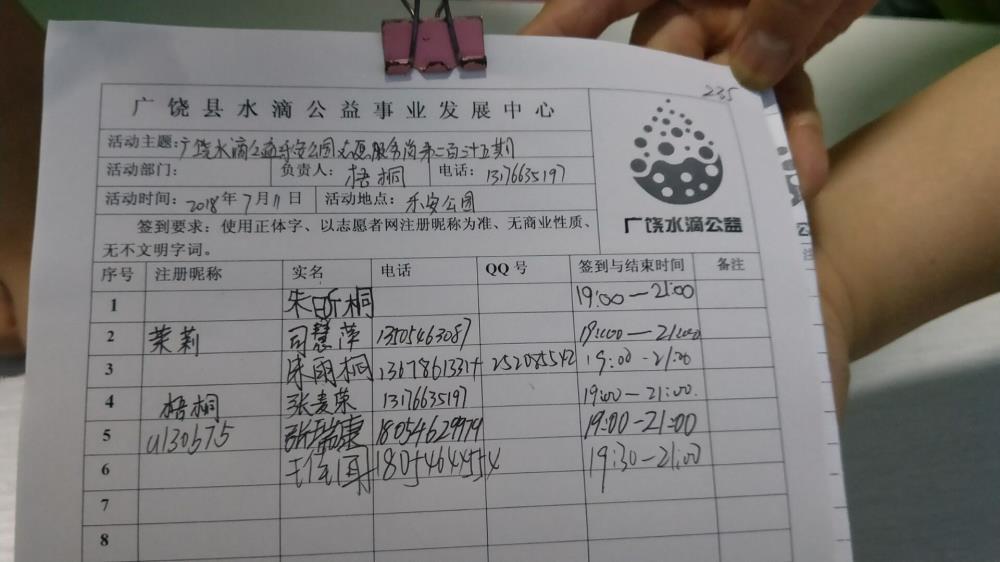 235
广饶县水滴公益事业发展中心
活动主题：广饶水滴公益乐安公园志愿服务岗第二百三十五期
活动部门： 负责人：梧桐 电话：13176635197
活动时间：2018年7月11日 活动地点：乐安公园
广饶水滴公益
签到要求：使用正体字、以志愿者网注册昵称为准、无商业性质、
无不文明字词。
序号 注册昵称 实名 电话 QQ号 签到与结束时间 备注
1 朱昕桐 19:00—21:00
2 茉莉 司慧萍 13105463087 19:00—21:00
3 宋雨桐 252085542 19:00-21:00
4 梧桐 张麦荣 13176635197 19:00—21:00.
5 u130675 张瑞康 18054629979 19:00-21:00
6 19:30—21:00
7
8